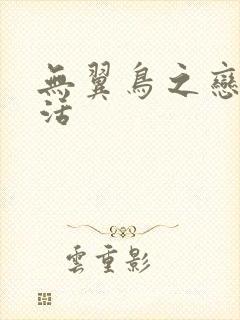 無翼鳥之戀
活
雲重影